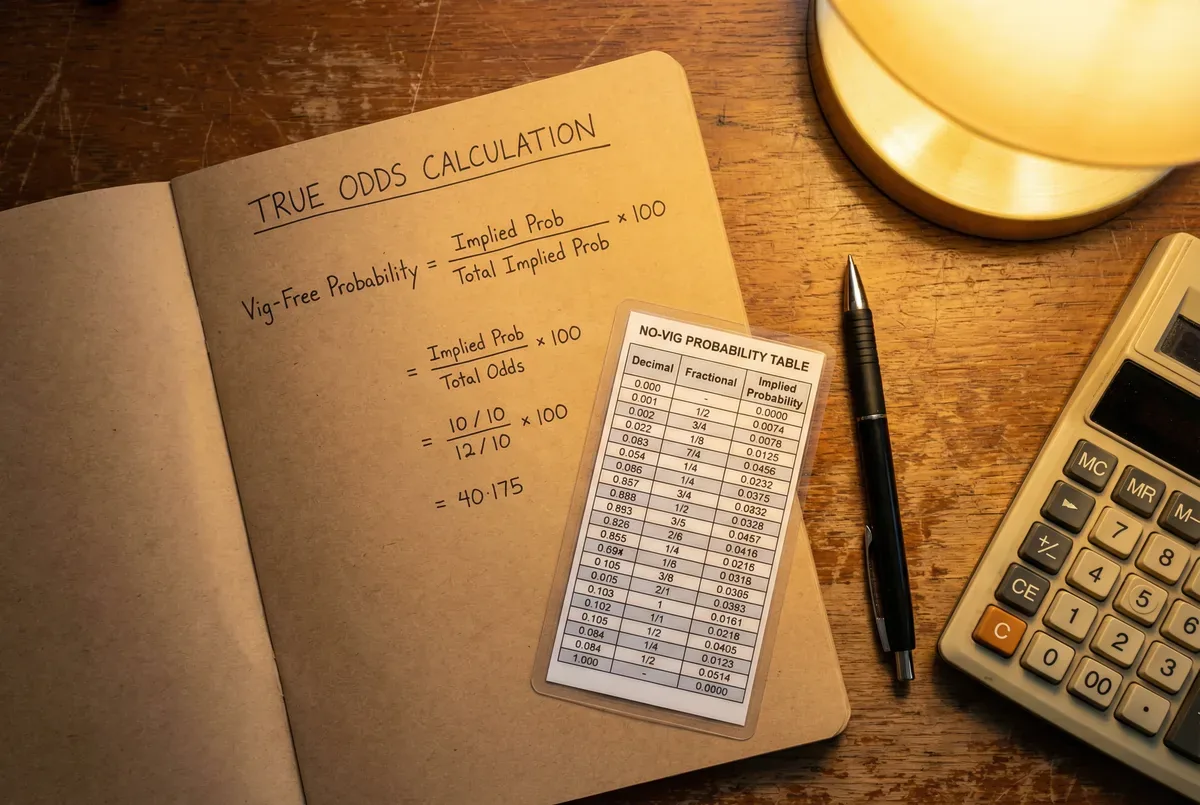 TRUE ODDS CALCULATION
Vig-Free Probability = Implied Prob / Total Implied Prob × 100
= Implied Prob / Total Odds × 100
= 10 / 10 / 12 / 10 × 100
= 40·175
NO-VIG PROBABILITY TABLE
Decimal Fractional Implied Probability
0.000 - 0.0000
0.001 1/2 0.0074
0.002 3/4 0.0078
0.022 1/8 0.0125
0.083 7/4 0.0456
0.054 1/4 0.0232
0.086 1/4 0.0375
0.857 3/4 0.0332
0.888 1/2 0.0328
0.893 3/5 0.0457
0.826 2/6 0.0416
0.855 1/4 0.0216
1/6 0.0318
0.105 3/8 0.0365
0.005 2/1 0.0393
0.103 1 0.0161
0.102 1/1 0.0218
0.105 1/2 0.0405
0.084 1/4 0.0123
0.084 1/2 0.0514
1.000 - 0.0000
MC MR M-
► 7 8
+/- 4 5 6
CE 1 2 3
C 0 00 ·